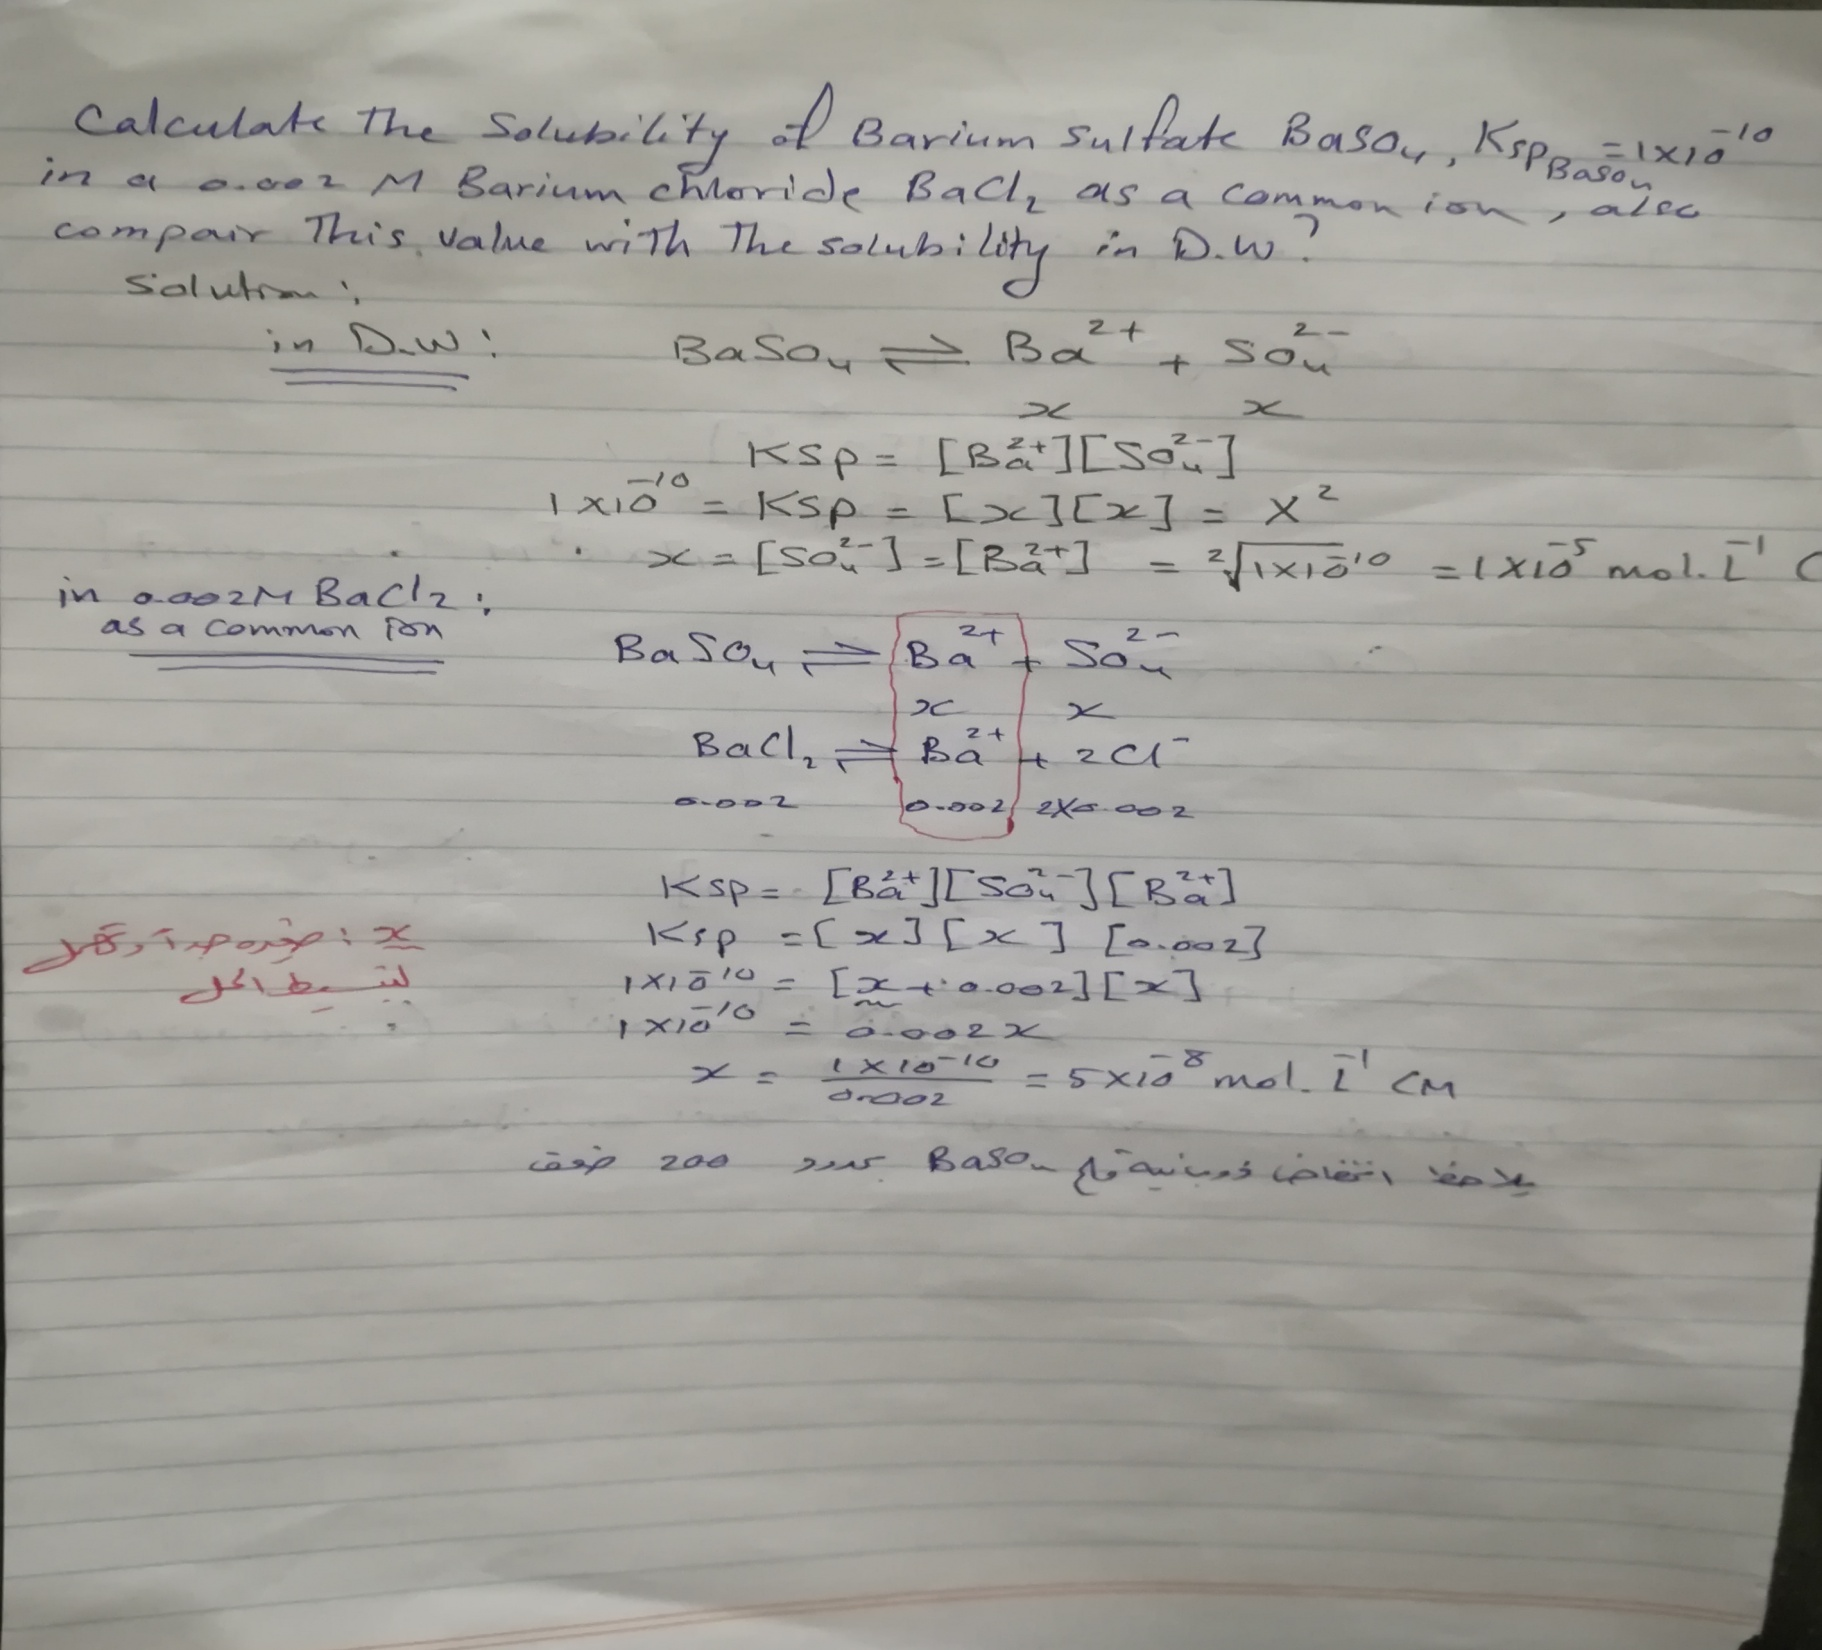 Calculate The Solubility of Barium Sulfate BaSO₄, Ksp BaSO₄ = 1x10⁻¹⁰
in a 0.002 M Barium chloride BaCl₂ as a common ion, also
compair This value with The solubility in D.W?
Solution:
in D.W:
BaSO₄ ⇌ Ba²⁺ + SO₄²⁻
x x
Ksp = [Ba²⁺][SO₄²⁻]
1x10⁻¹⁰ = Ksp = [x][x] = X²
x = [SO₄²⁻] = [Ba²⁺] = ²√1x10⁻¹⁰ = 1x10⁻⁵ mol.L⁻¹ C
in 0.002M BaCl₂:
as a common ion
BaSO₄ ⇌ Ba²⁺ + SO₄²⁻
x x
BaCl₂ ⇌ Ba²⁺ + 2Cl⁻
0.002 0.002 2x0.002
Ksp = [Ba²⁺][SO₄²⁻][Ba²⁺]
Ksp = [x][x] [0.002]
x :
1x10⁻¹⁰ = [x + 0.002][x]
لتبسيط الحل
1x10⁻¹⁰ = 0.002x
x = 1x10⁻¹⁰ / 0.002 = 5x10⁻⁸ mol.L⁻¹ CM
يلاحظ انخفاض ذوبانية ملح BaSO₄ بحدود 200 ضعف